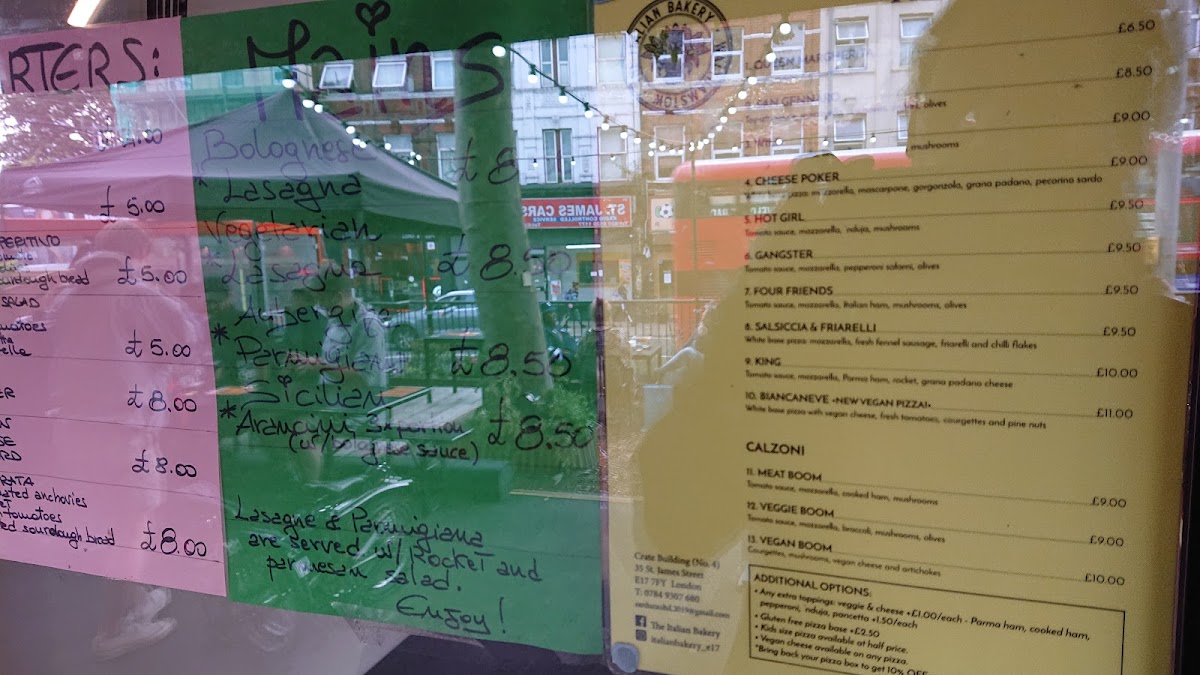 RTERS:
£4.00
£5.00
PERITIVO
bread £5.00
SALAD
£5.00
£8.00
£8.00
anchovies
tomatoes
sourdough bread £8.00
Mains
Bolognese £8
* Lasagna
Vegetarian
* Lasagna £8.50
Aubergine
* Parmigiana £8.50
Sicilian
* Arancini 3 £8.50
(w/ bolognese sauce)
Lasagne & Parmigiana
are served w/ Rocket and
parmesan salad.
Enjoy!
ITALIAN BAKERY
£6.50
£8.50
olives
£9.00
mushrooms
4. CHEESE POKER £9.00
pizza: mozzarella, mascarpone, gorgonzola, grana padano, pecorino sardo
5. HOT GIRL £9.50
Tomato sauce, mozzarella, nduja, mushrooms
6. GANGSTER £9.50
Tomato sauce, mozzarella, pepperoni salami, olives
7. FOUR FRIENDS £9.50
Tomato sauce, mozzarella, Italian ham, mushrooms, olives
8. SALSICCIA & FRIARELLI £9.50
White base pizza: mozzarella, fresh fennel sausage, friarielli and chilli flakes
9. KING £10.00
Tomato sauce, mozzarella, Parma ham, rocket, grana padano cheese
10. BIANCANEVE •NEW VEGAN PIZZA!• £11.00
White base pizza with vegan cheese, fresh tomatoes, courgettes and pine nuts
CALZONI
11. MEAT BOOM £9.00
Tomato sauce, mozzarella, cooked ham, mushrooms
12. VEGGIE BOOM £9.00
Tomato sauce, mozzarella, broccoli, mushrooms, olives
13. VEGAN BOOM £10.00
Courgettes, mushrooms, vegan cheese and artichokes
ADDITIONAL OPTIONS:
• Any extra toppings: veggie & cheese +£1.00/each - Parma ham, cooked ham,
pepperoni, nduja, pancetta +1.50/each
• Gluten free pizza base +£2.50
• Kids size pizza available at half price.
• Vegan cheese available on any pizza.
*Bring back your pizza box to get 10% OFF
Crate Building (No. 4)
35 St. James Street
E17 7FY London
T: 0784 9307 680
The Italian Bakery
italianbakery_e17
ST. JAMES CARS